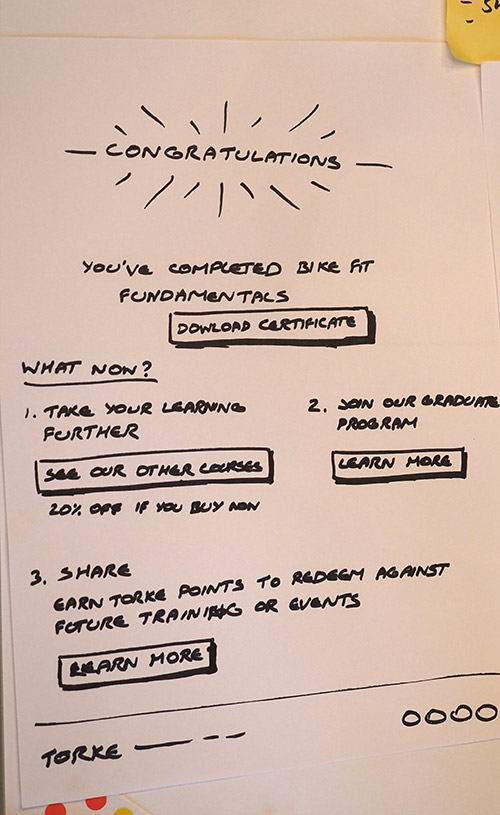 CONGRATULATIONS
YOU'VE COMPLETED BIKE FIT
FUNDAMENTALS
DOWLOAD CERTIFICATE
WHAT NOW?
1. TAKE YOUR LEARNING
FURTHER
SEE OUR OTHER COURSES
20% OFF IF YOU BUY NOW
2. JOIN OUR GRADUATE
PROGRAM
LEARN MORE
3. SHARE
EARN TORKE POINTS TO REDEEM AGAINST
FUTURE TRAINING OR EVENTS
LEARN MORE
TORKE